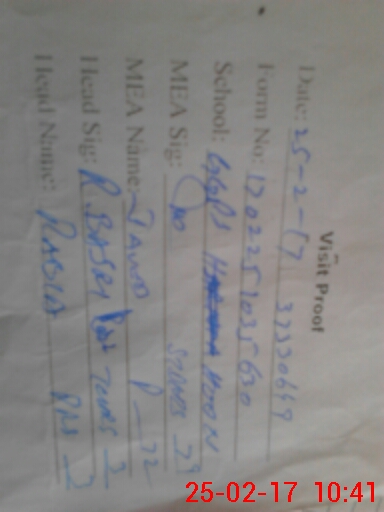 Visit Proof
Date: 25-2-17 37330649
Form No: 1702251035630
School: GGPS HOON
MEA Sig: STAMPS 29
MEA Name: JAWAD P_22
Head Sig: R.BASRI 3
Head Name: RABIA
25-02-17 10:41